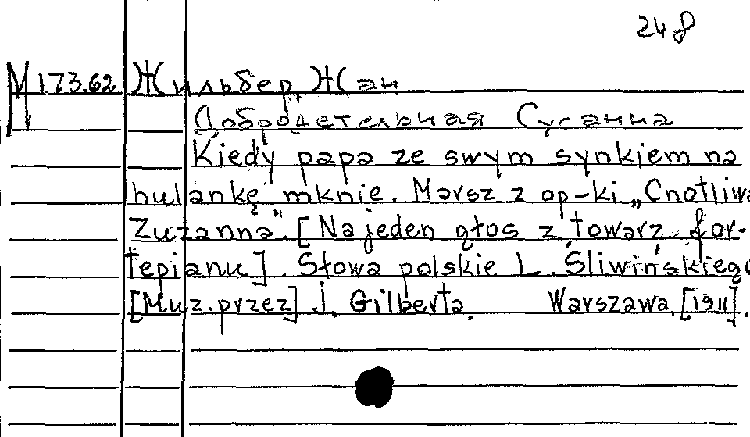 248
М 173.62 Жильбер, Жан
"Добродетельная Сусанна
Kiedy papa ze swym synkiem na
hulankę mknie. Marsz z op-ki „Cnotliwa
Zuzanna". [Na jeden głos z towarz. for-
tepianu]. Słowa polskie L. Śliwińskiego
[Muz. przez] J. Gilberta. Warszawa, [1911].